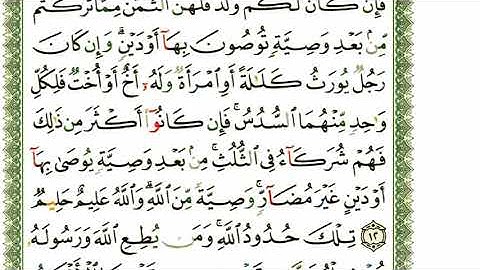 فَإِن كَانَ لَكُمْ وَلَدٌ فَلَهُنَّ الثُّمُنُ مِمَّا تَرَكْتُم
مِّنۢ بَعْدِ وَصِيَّةٍ تُوصُونَ بِهَآ أَوْ دَيْنٍ ۗ وَإِن كَانَ
رَجُلٌ يُورَثُ كَلَٰلَةً أَوِ امْرَأَةٌ وَلَهُۥٓ أَخٌ أَوْ أُخْتٌ فَلِكُلِّ
وَٰحِدٍ مِّنْهُمَا السُّدُسُ ۚ فَإِن كَانُوٓا۟ أَكْثَرَ مِن ذَٰلِكَ
فَهُمْ شُرَكَآءُ فِي الثُّلُثِ ۚ مِنۢ بَعْدِ وَصِيَّةٍ يُوصَىٰ بِهَآ
أَوْ دَيْنٍ غَيْرَ مُضَآرٍّ ۚ وَصِيَّةً مِّنَ اللَّهِ ۗ وَاللَّهُ عَلِيمٌ حَلِيمٌ
١٢ تِلْكَ حُدُودُ اللَّهِ ۚ وَمَن يُطِعِ اللَّهَ وَرَسُولَهُۥ